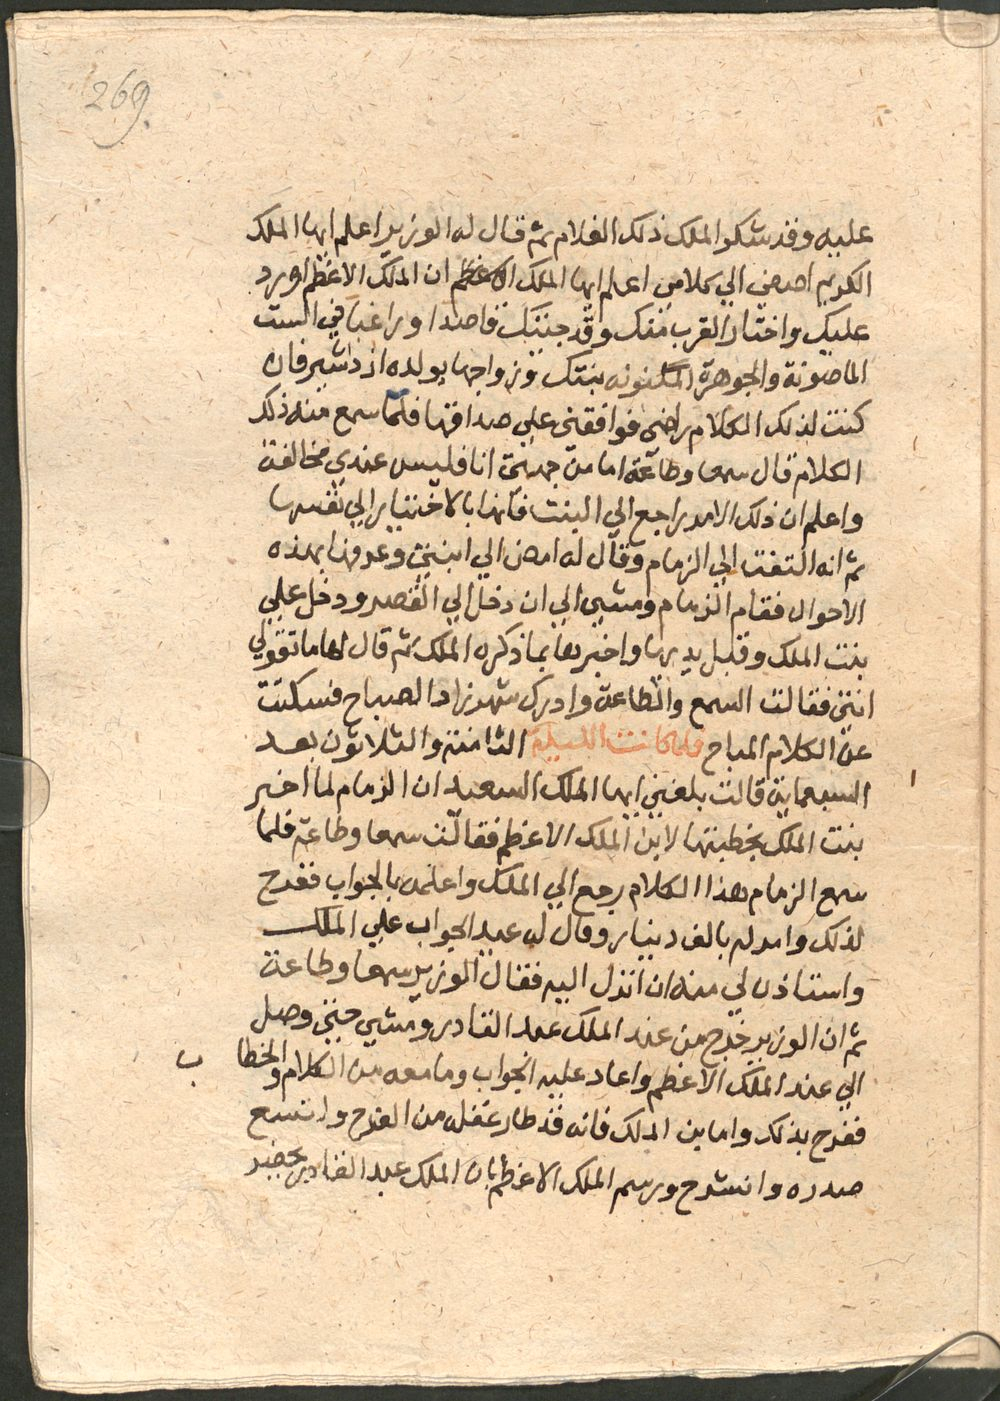 269
عليه وقد شكر الملك ذلك الغلام ثم قال له الوزير اعلم ايها الملك
الكريم اصغي الي كلامي اعلم ايها الملك الاعظم ان الملك الاعظم اورد
عليك واختار القرب منك وقد جيتك قاصدا وراغبا في الست
الماصونة والجوهرة المكنونه بنتك وزواجها بولده ازدشير فان
كنت لذلك الكلام راضى فوافقنى علي صداقها فلما سمع منه ذلك
الكلام قال سمعا وطاعة اما من جهتى انا فليس عندي مخالفة
واعلم ان ذلك الامر راجع الي البنت فانها بالاختيار الي نفسها
ثم انه التفت الي الزمام وقال له امض الي ابنتى وعرفها بهذه
الاحوال فقام الزمام ومشي الي ان دخل الي القصر ودخل علي
بنت الملك وقبل يديها واخبرها بما ذكره الملك ثم قال لها ما تقولي
انتى فقالت السمع والطاعة وادرك شهرزاد الصباح فسكتت
عن الكلام المباح فلما كانت الليلة الثامنة والثلاثون بعد
السبعماية قالت بلغني ايها الملك السعيد ان الزمام لما اخبر
بنت الملك بخطبتها لابن الملك الاعظم فقالت سمعا وطاعة فلما
سمع الزمام هذا الكلام رجع الي الملك واعلمه بالجواب ففرح
لذلك وامر له بالف دينار وقال له عيد الجواب علي الملك
واستاذن لي منه ان انزل اليه فقال الوزير سمعا وطاعة
ثم ان الوزير خرج من عند الملك عبد القادر ومشي حتى وصل
الي عند الملك الاعظم واعاد عليه الجواب وما معه من الكلام والخطاب
ففرح بذلك واما بن الملك فانه قد طار عقله من الفرح واتسع
صدره وانشرح ورسم الملك الاعظم بان الملك عبد القادر يحضر